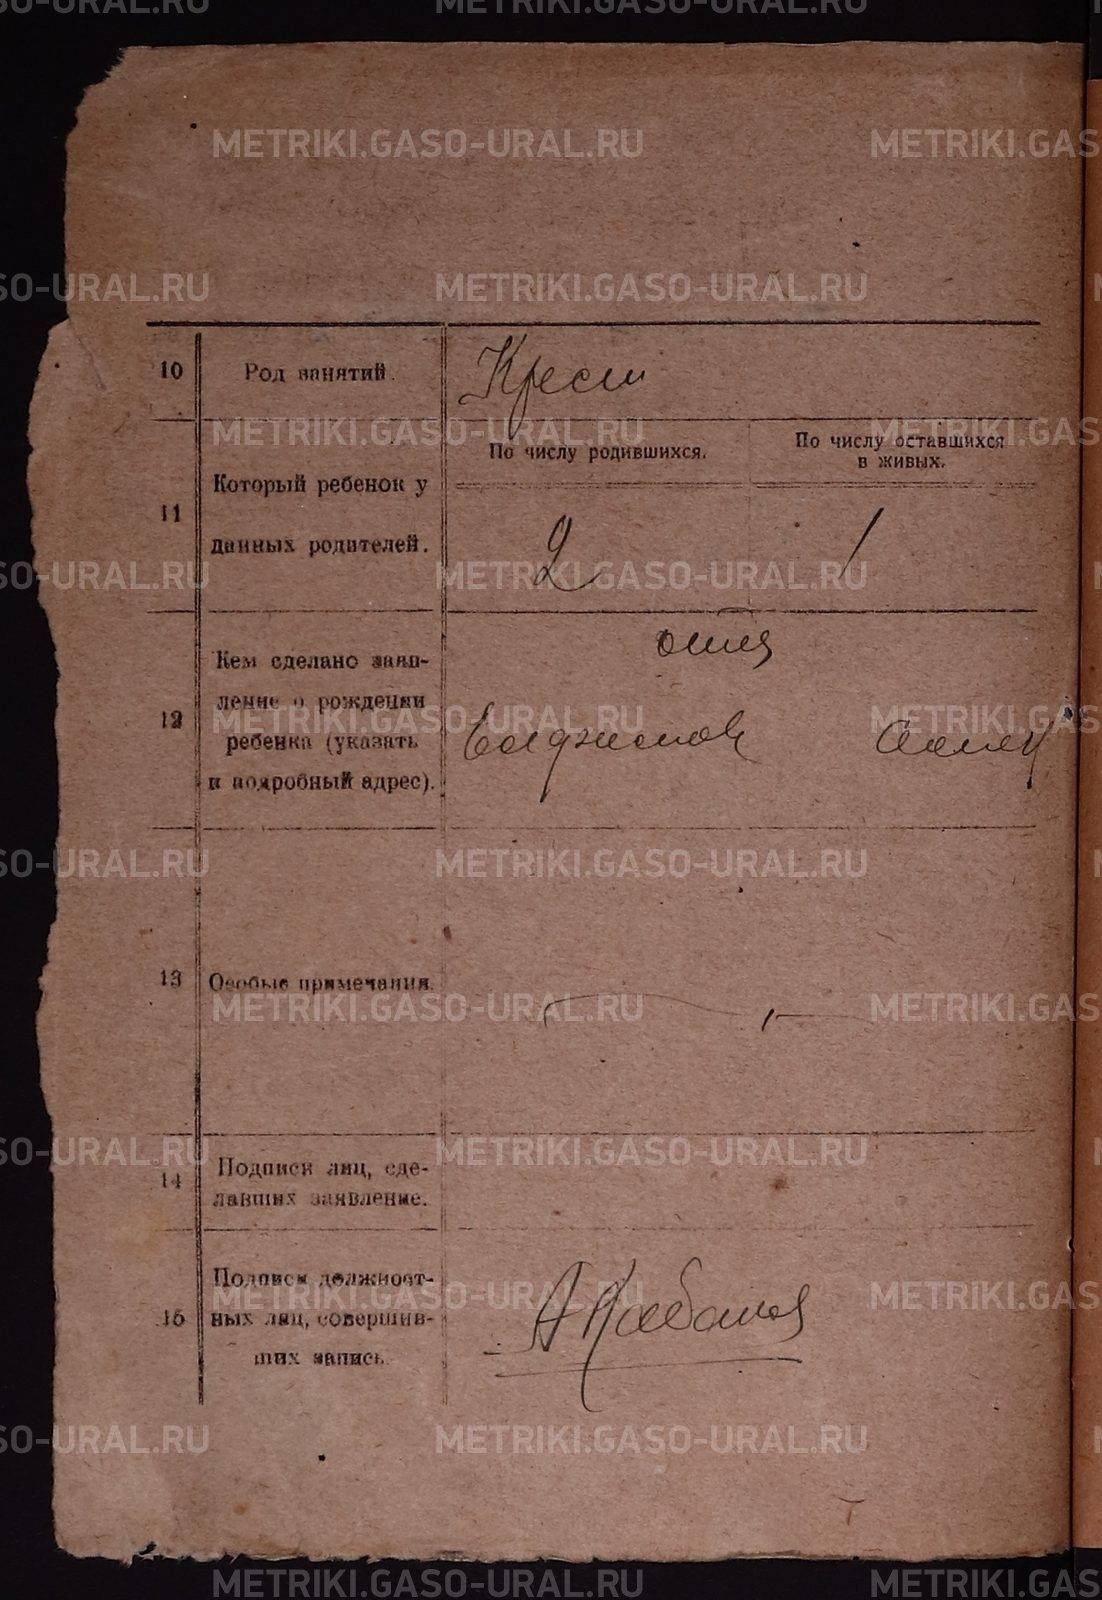 METRIKI.GASO-URAL.RU
10 Род занятий. Крест
11 Который ребенок у данных родителей.
По числу родившихся.
По числу оставшихся
в живых.
2 1
12 Кем сделано заяв-
ление о рождении
ребенка (указать
и подробный адрес).
отец
13 Особые примечания.
14 Подписи лиц, сде-
лавших заявление.
15 Подписи должност-
ных лиц, совершив-
ших запись.